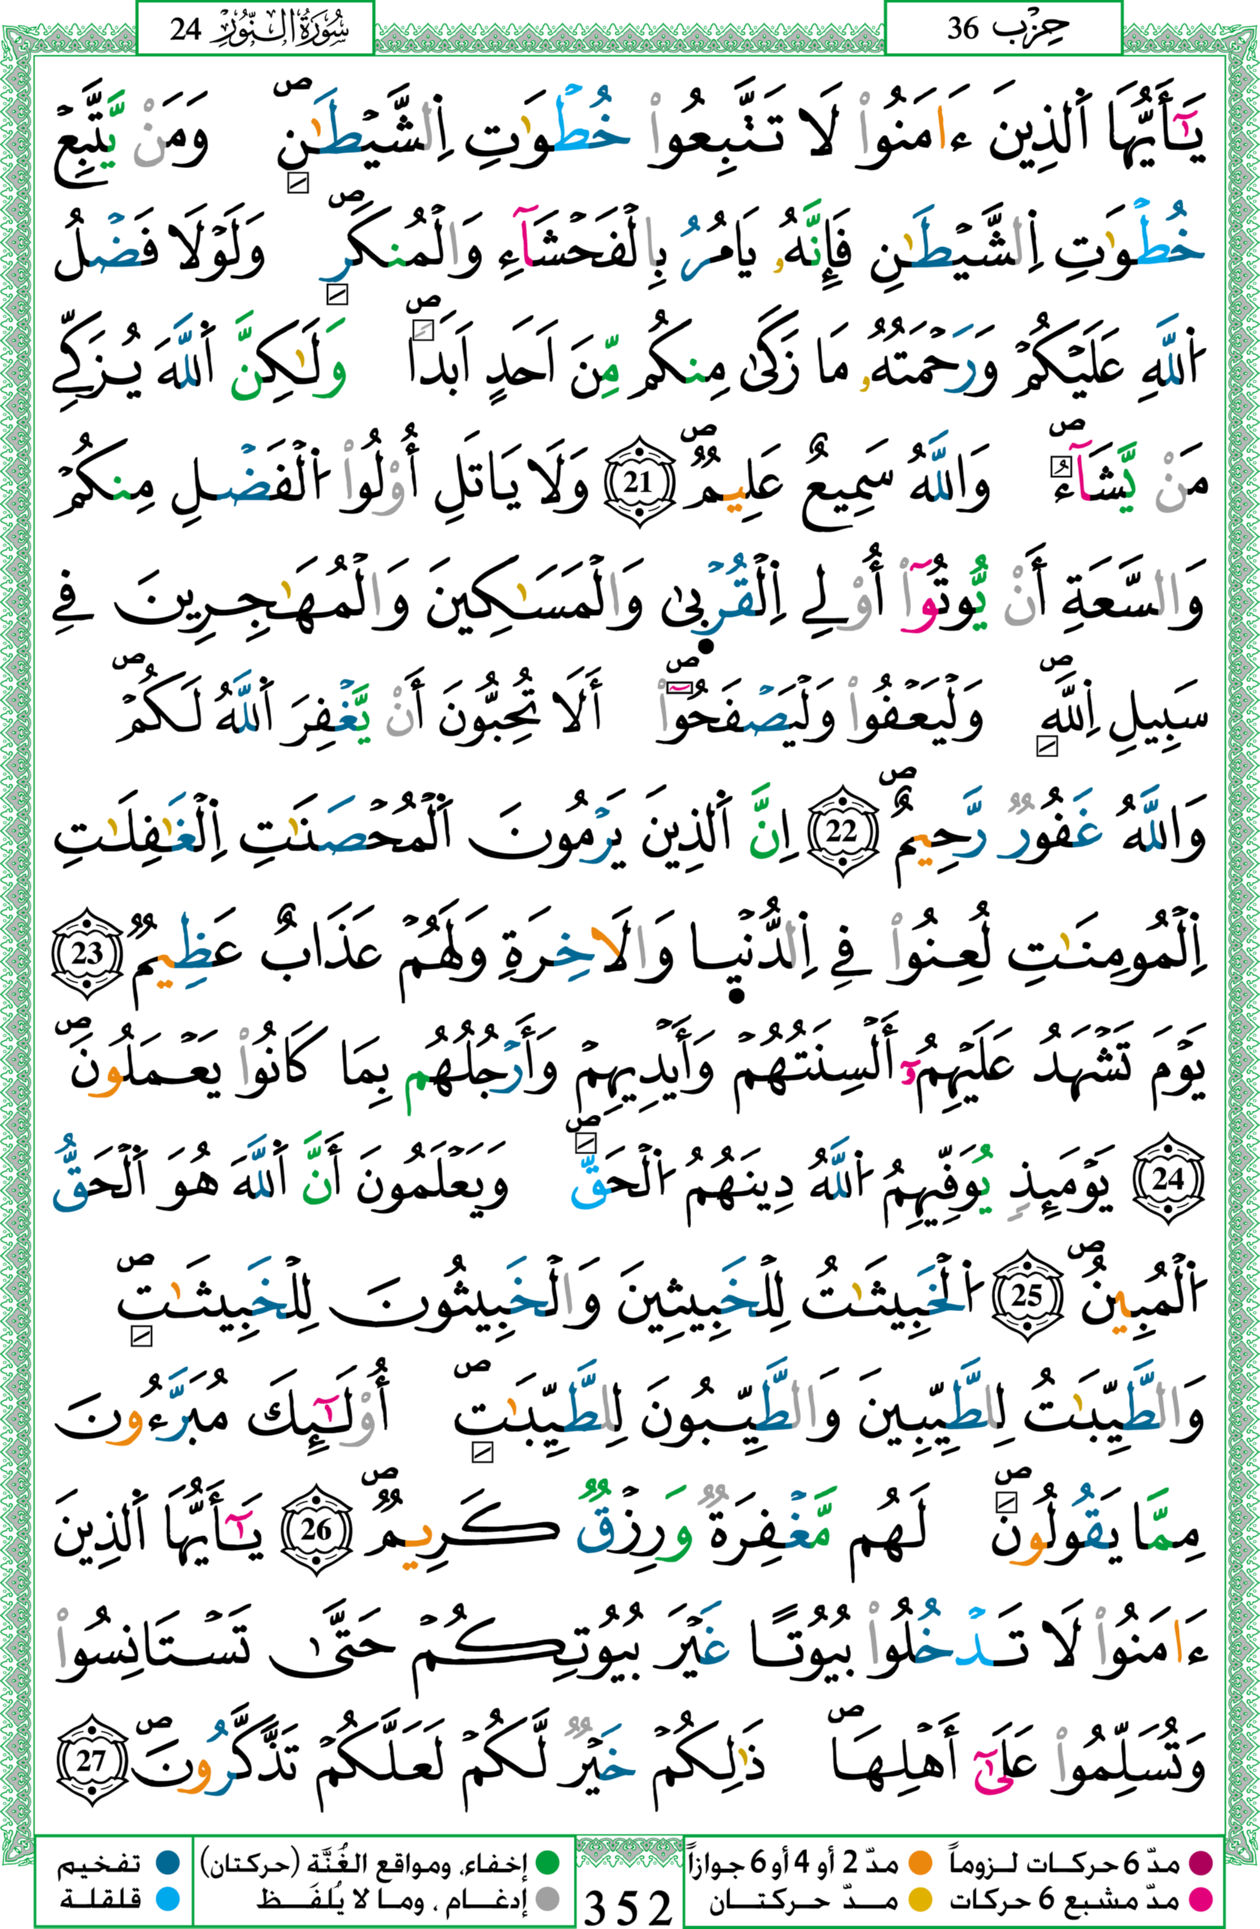 سُورَةُ النُّورِ 24
حِزْب 36
يَٰٓأَيُّهَا اَ۬لذِينَ ءَامَنُواْ لَا تَتَّبِعُواْ خُطْوَٰتِ اِ۬لشَّيْطَٰنِۖ وَمَنْ يَّتَّبِعْ
خُطْوَٰتِ اِ۬لشَّيْطَٰنِ فَإِنَّهُۥ يَامُرُ بِالْفَحْشَآءِ وَالْمُنكَرِۖ وَلَوْلَا فَضْلُ
اُ۬للَّهِ عَلَيْكُمْ وَرَحْمَتُهُۥ مَا زَكَىٰ مِنكُم مِّنَ اَحَدٍ اَبَداٗۖ وَلَٰكِنَّ اَ۬للَّهَ يُزَكِّے
مَنْ يَّشَآءُۖ وَاللَّهُ سَمِيعٌ عَلِيمٞۖ 21 وَلَا يَاتَلِ أُوْلُواْ اُ۬لْفَضْلِ مِنكُمْ
وَالسَّعَةِ أَنْ يُّوتُوٓاْ أُوْلِے اِ۬لْقُرْبىٰ وَالْمَسَٰكِينَ وَالْمُهَٰجِرِينَ فِے
سَبِيلِ اِ۬للَّهِۖ وَلْيَعْفُواْ وَلْيَصْفَحُوٓاْۖ أَلَا تُحِبُّونَ أَنْ يَّغْفِرَ اَ۬للَّهُ لَكُمْۖ
وَاللَّهُ غَفُورٞ رَّحِيمٌۖ 22 اِنَّ اَ۬لذِينَ يَرْمُونَ اَ۬لْمُحْصَنَٰتِ اِ۬لْغَٰفِلَٰتِ
اِ۬لْمُومِنَٰتِ لُعِنُواْ فِے اِ۬لدُّنْيٜا وَالَاخِرَةِ وَلَهُمْ عَذَابٌ عَظِيمٞ 23
يَوْمَ تَشْهَدُ عَلَيْهِمُۥٓ أَلْسِنَتُهُمْ وَأَيْدِيهِمْ وَأَرْجُلُهُم بِمَا كَانُواْ يَعْمَلُونَۖ
24 يَوْمَئِذٖ يُوَفِّيهِمُ اُ۬للَّهُ دِينَهُمُ اُ۬لْحَقَّۖ وَيَعْلَمُونَ أَنَّ اَ۬للَّهَ هُوَ اَ۬لْحَقُّ
اُ۬لْمُبِينُۖ 25 اُ۬لْخَبِيثَٰتُ لِلْخَبِيثِينَ وَالْخَبِيثُونَ لِلْخَبِيثَٰتِۖ
وَالطَّيِّبَٰتُ لِلطَّيِّبِينَ وَالطَّيِّبُونَ لِلطَّيِّبَٰتِۖ أُوْلَٰٓئِكَ مُبَرَّءُونَ
مِمَّا يَقُولُونَۖ لَهُم مَّغْفِرَةٞ وَرِزْقٞ كَرِيمٞۖ 26 يَٰٓأَيُّهَا اَ۬لذِينَ
ءَامَنُواْ لَا تَدْخُلُواْ بُيُوتًا غَيْرَ بُيُوتِكُمْ حَتَّىٰ تَسْتَانِسُواْ
وَتُسَلِّمُواْ عَلَىٰٓ أَهْلِهَاۖ ذَٰلِكُمْ خَيْرٞ لَّكُمْ لَعَلَّكُمْ تَذَّكَّرُونَۖ 27
مدّ 6 حركات لـزوماً مدّ 2 أو 4 أو 6 جوازاً إخفاء، ومواقع الغُنَّة (حركتان) تفخيم
مدّ مشبع 6 حركات مـدّ حركتـان إدغـام ، ومـا لا يُلفَـظ قلقلة
352